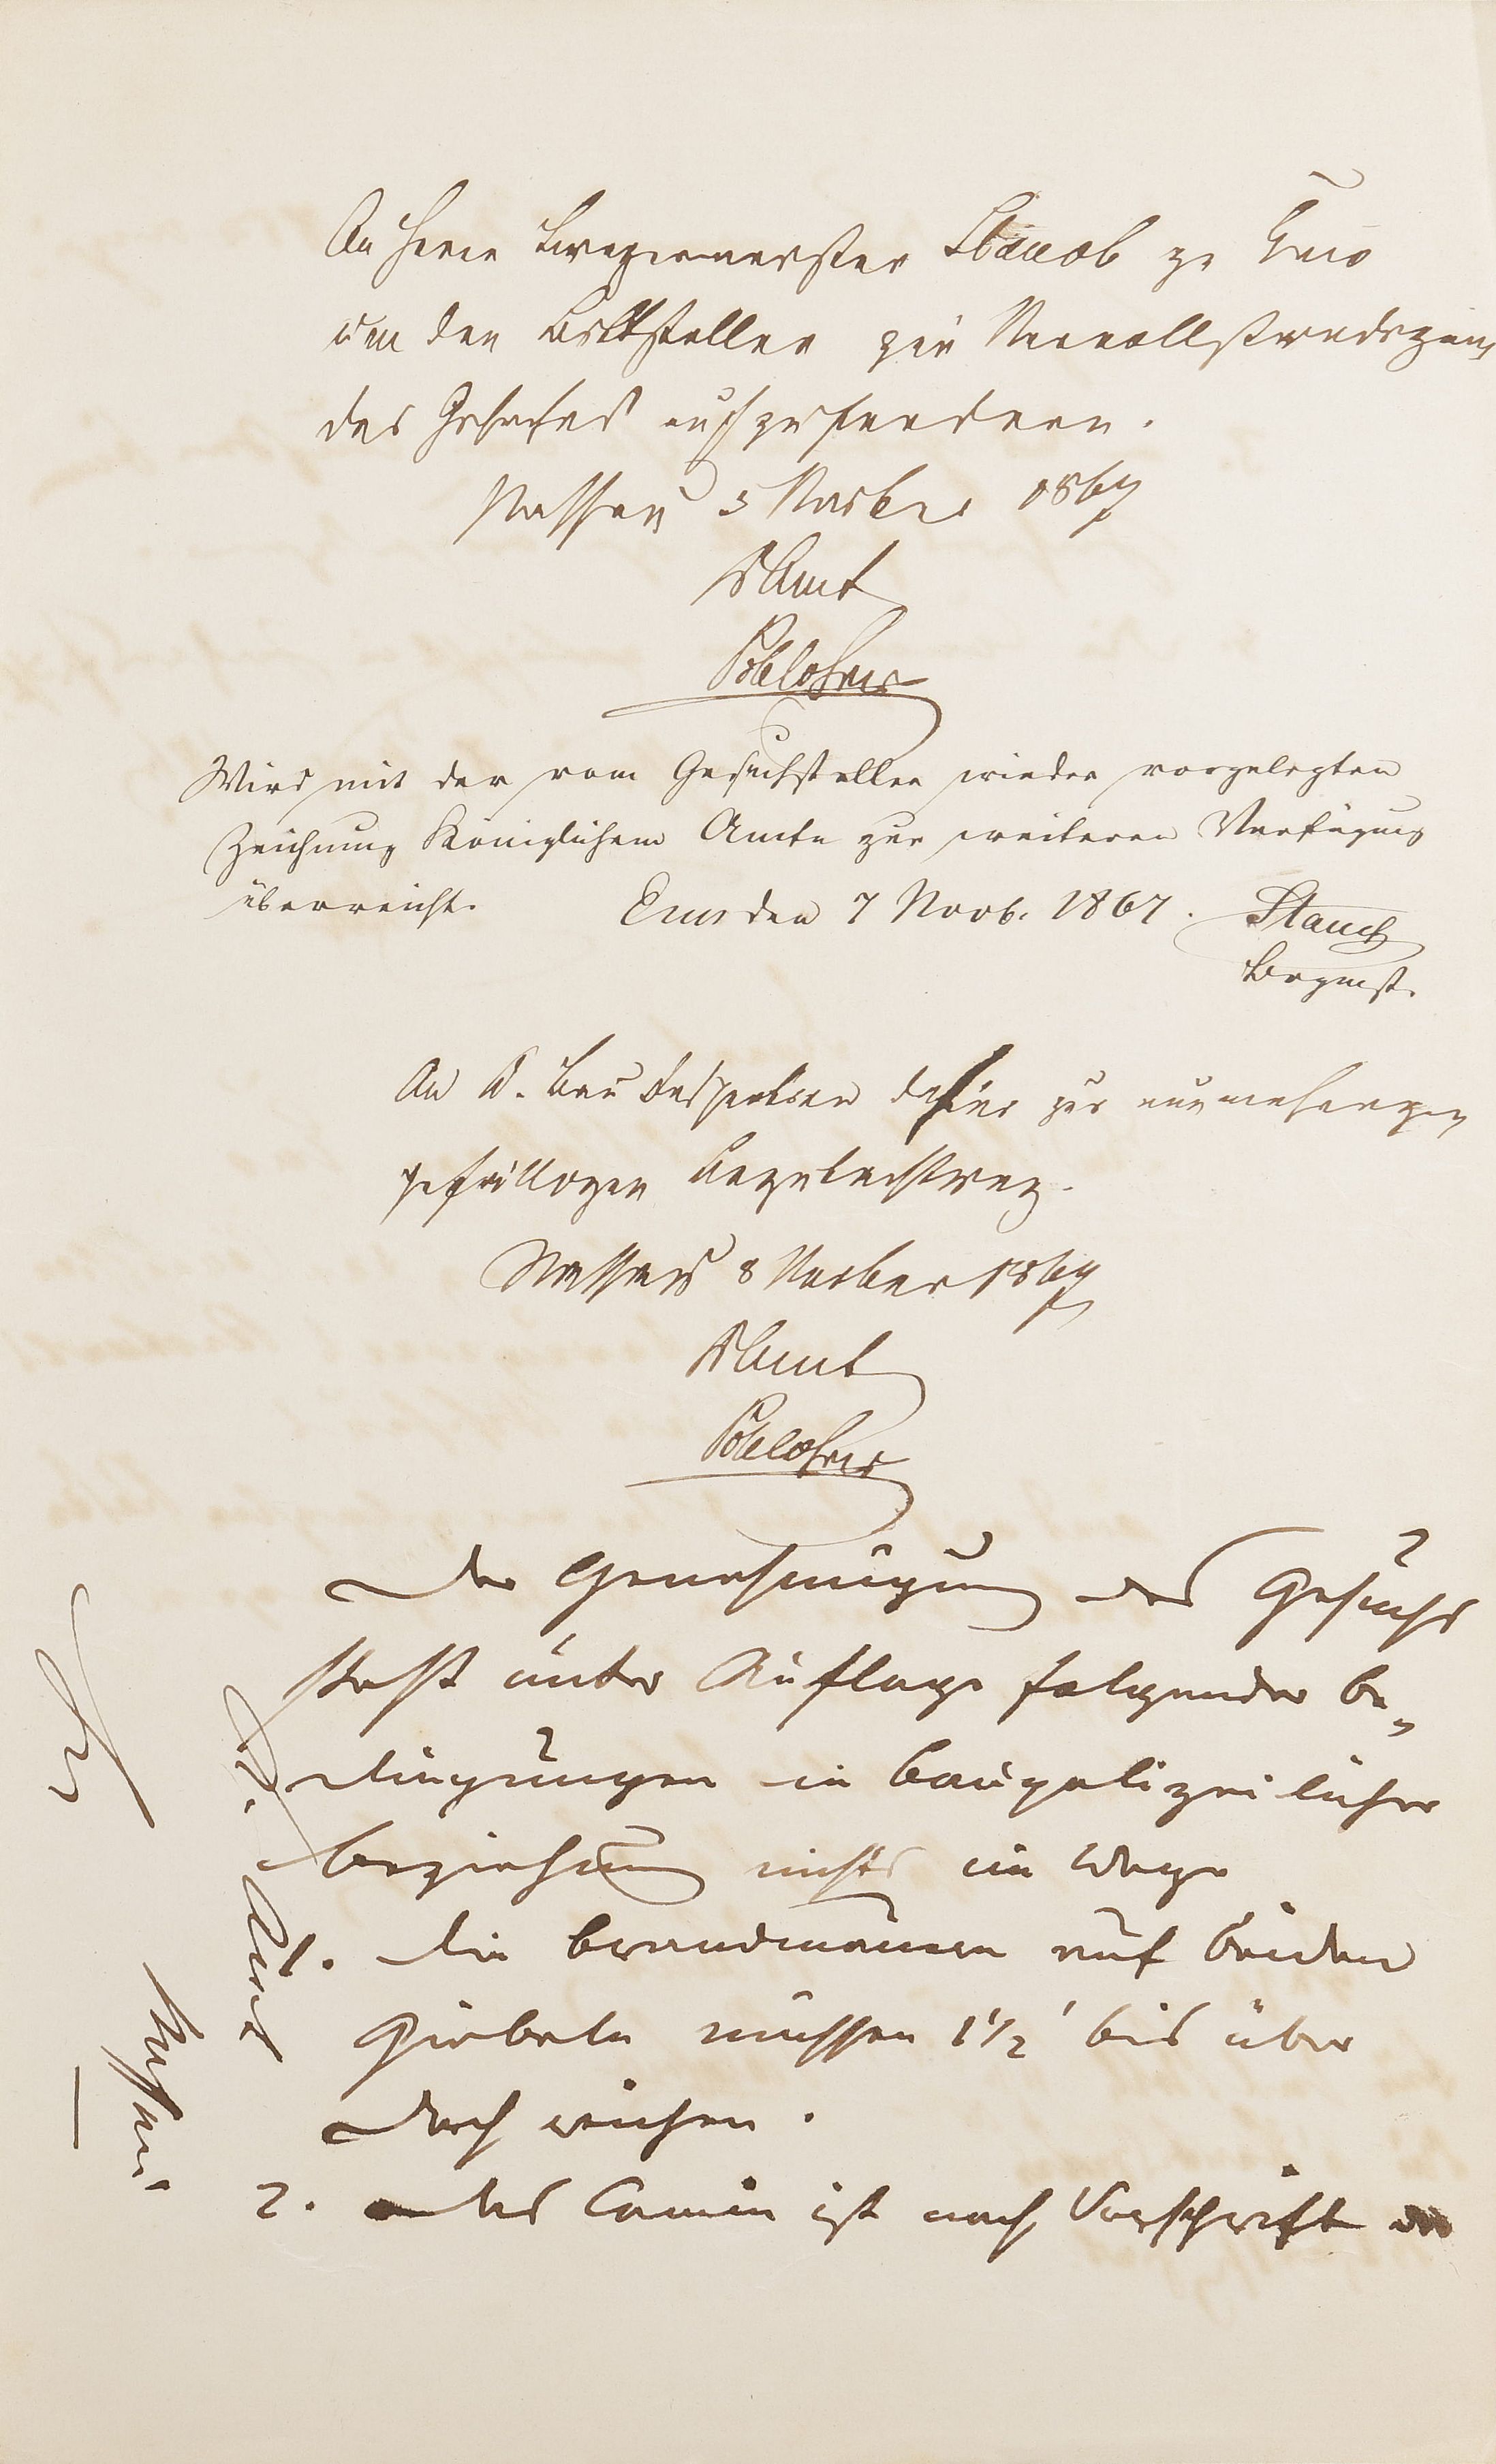 An Herrn Bürgermeister Stauch zu Ems
um den Bittsteller zur Vervollständigung
des Gesuches aufzufordern.
Nassau 5 Novber 1867
K Amt
Wird mit der vom Gesuchsteller wieder vorgelegten
Zeichnung Königlichem Amte zur weiteren Verfügung
überreicht.
Ems den 7 Novb. 1867.
Stauch
Bürgmst.
An K. Bau Inspection dahier zur nunmehrigen
gefälligen Begutachtung.
Nassau 8 Novber 1867
K Amt
Der Genehmigung des Gesuchs
steht unter Auflage folgender Be„
dingungen in baupolizeilicher
Beziehung nichts im Wege
1. die Brandmauern auf beiden
Giebeln müssen 1 1/2' bis über
Dach reichen.
2. das Camin ist nach Vorschrift